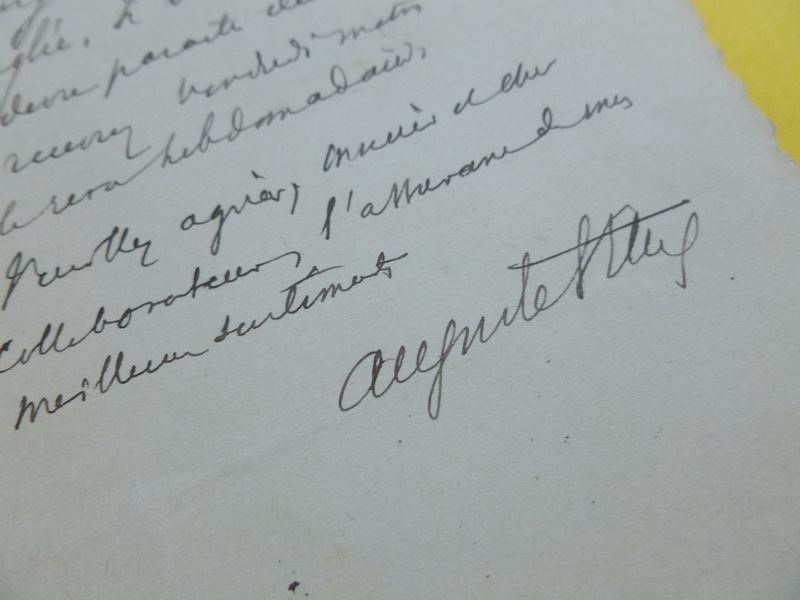 devra paraître
recevrez vendredi matin
le sera hebdomadaire,
Veuillez agréer, Monsieur et cher
collaborateur, l'assurance de mes
meilleurs sentiments
Auguste